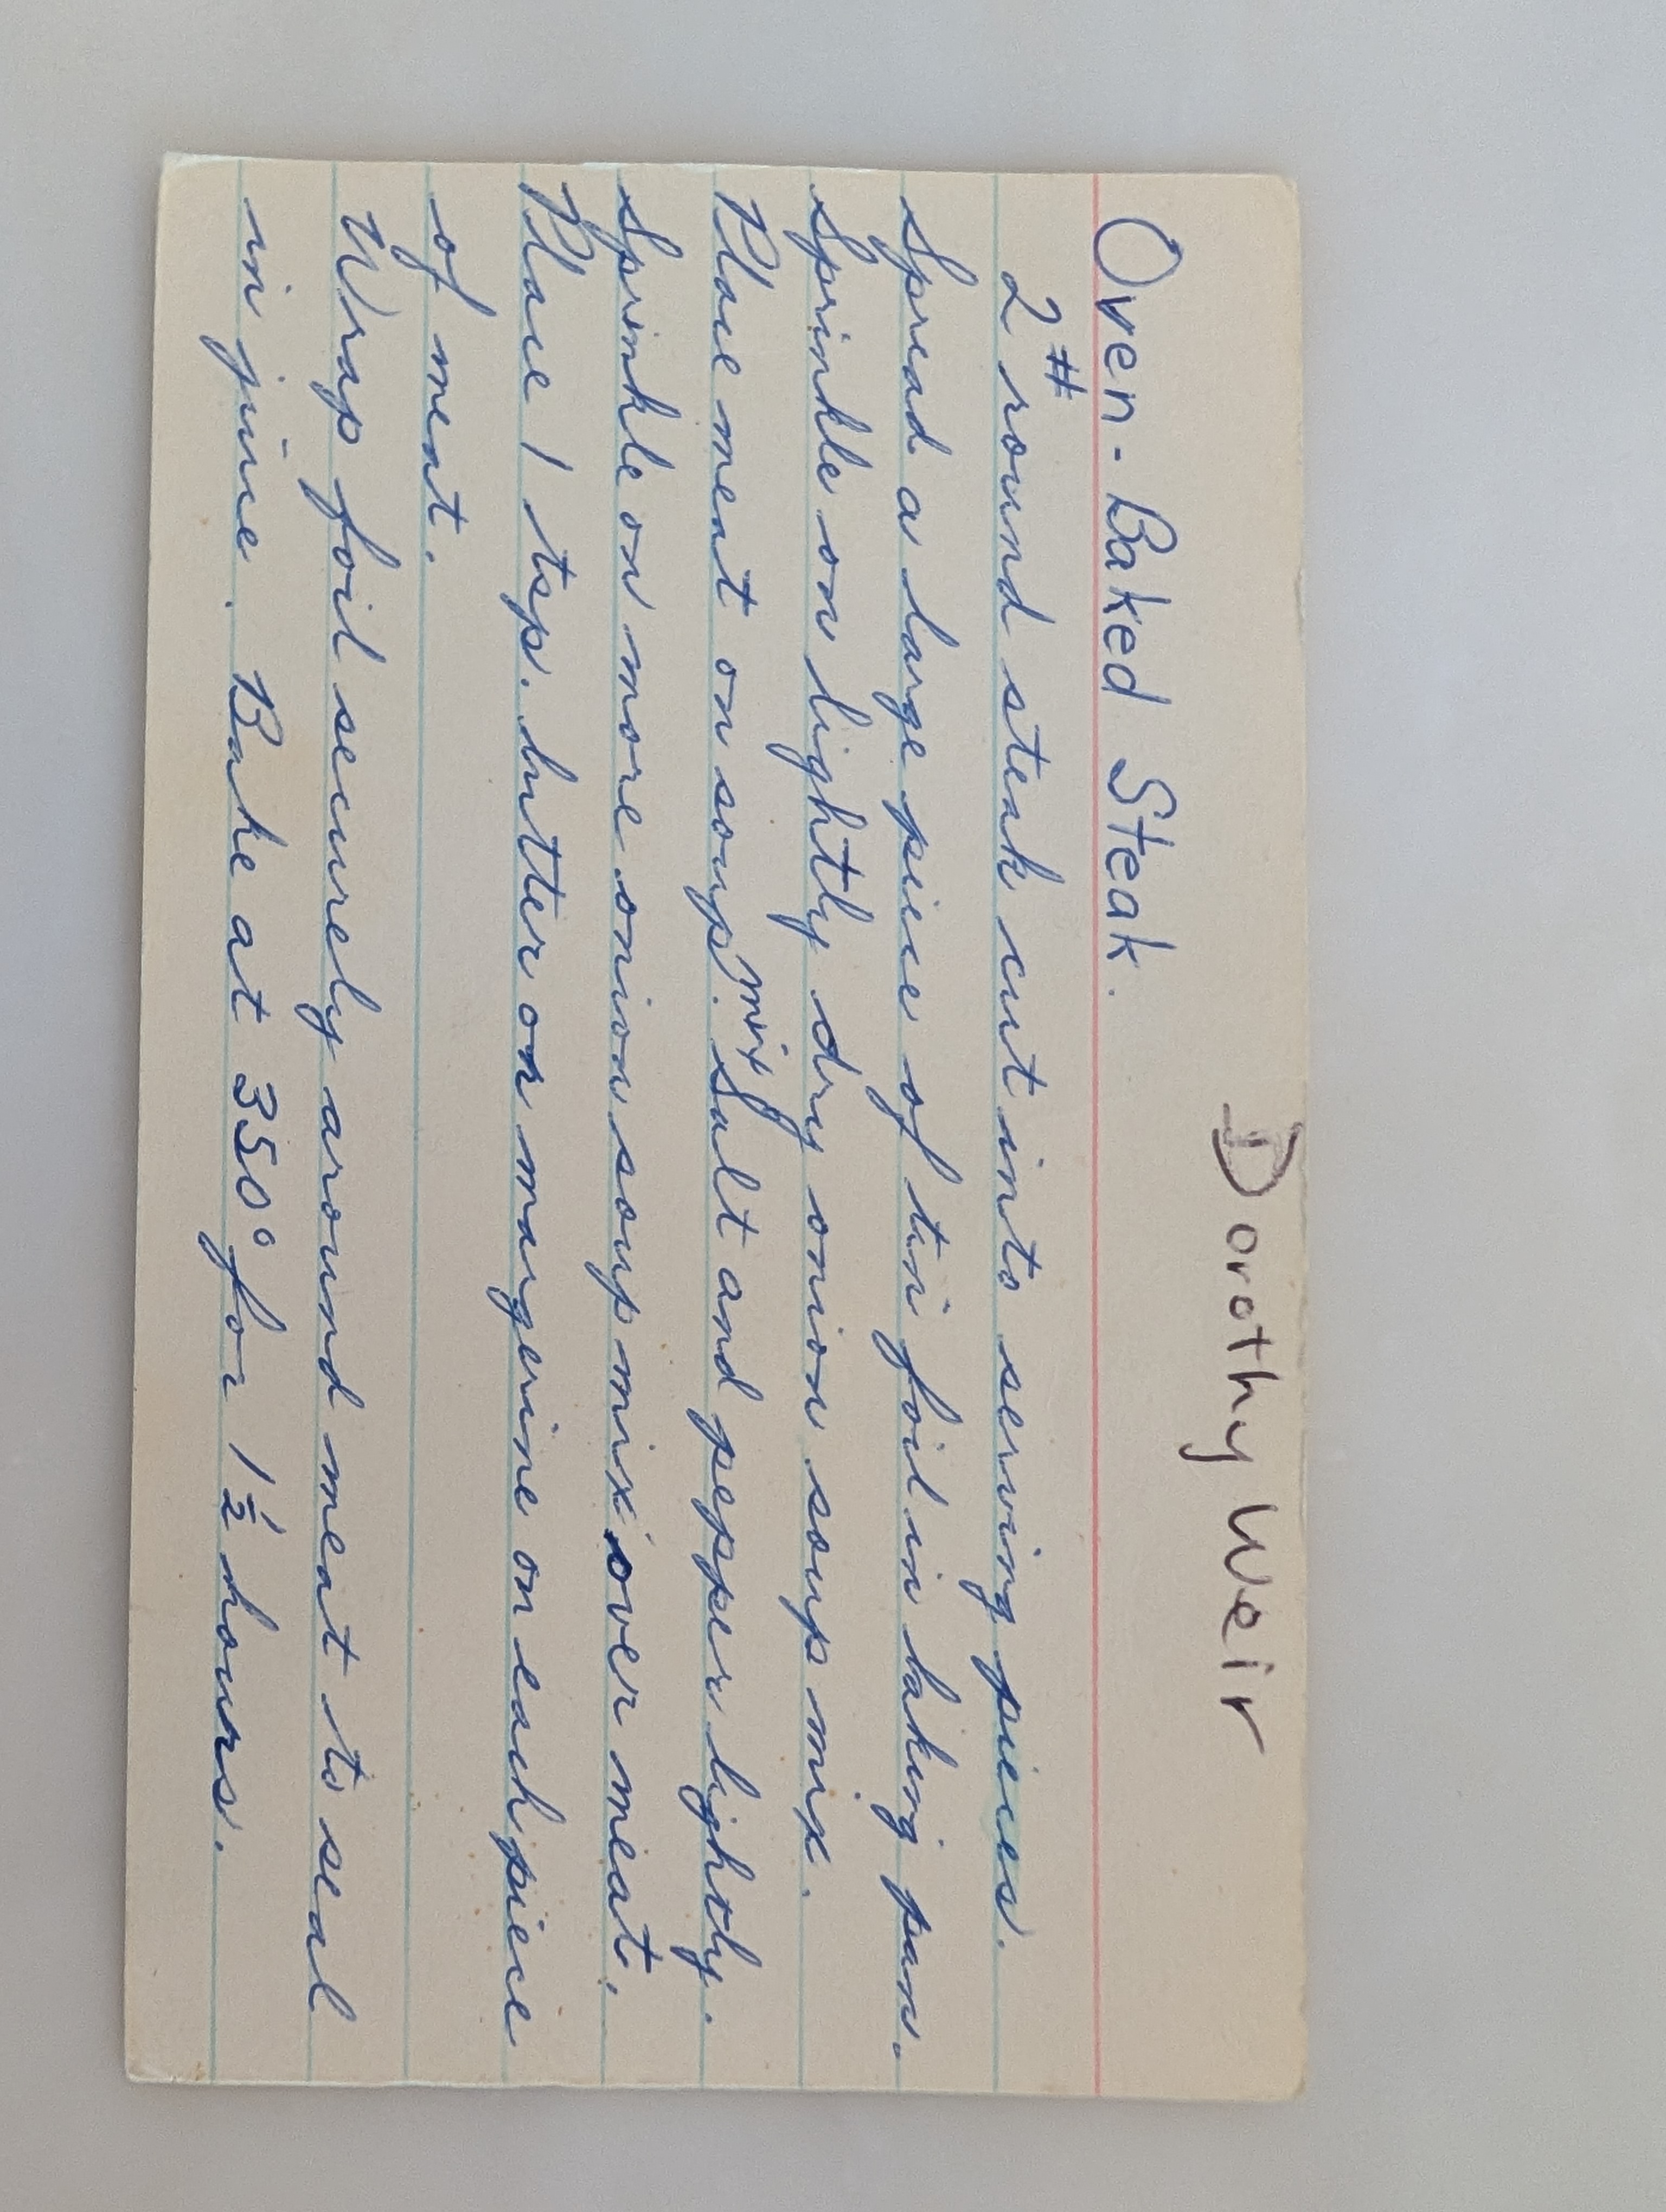 Dorothy Weir
Oven-Baked Steak.
2# round steak cut into serving pieces.
Spread a large piece of tin foil in baking pan.
Sprinkle on lightly dry onion soup mix.
Place meat on soup mix. Salt and pepper lightly.
Sprinkle on more onion soup mix over meat.
Place 1 tsp. butter or margerine on each piece
of meat.
Wrap foil securely around meat to seal
in juice. Bake at 350° for 1½ hours.